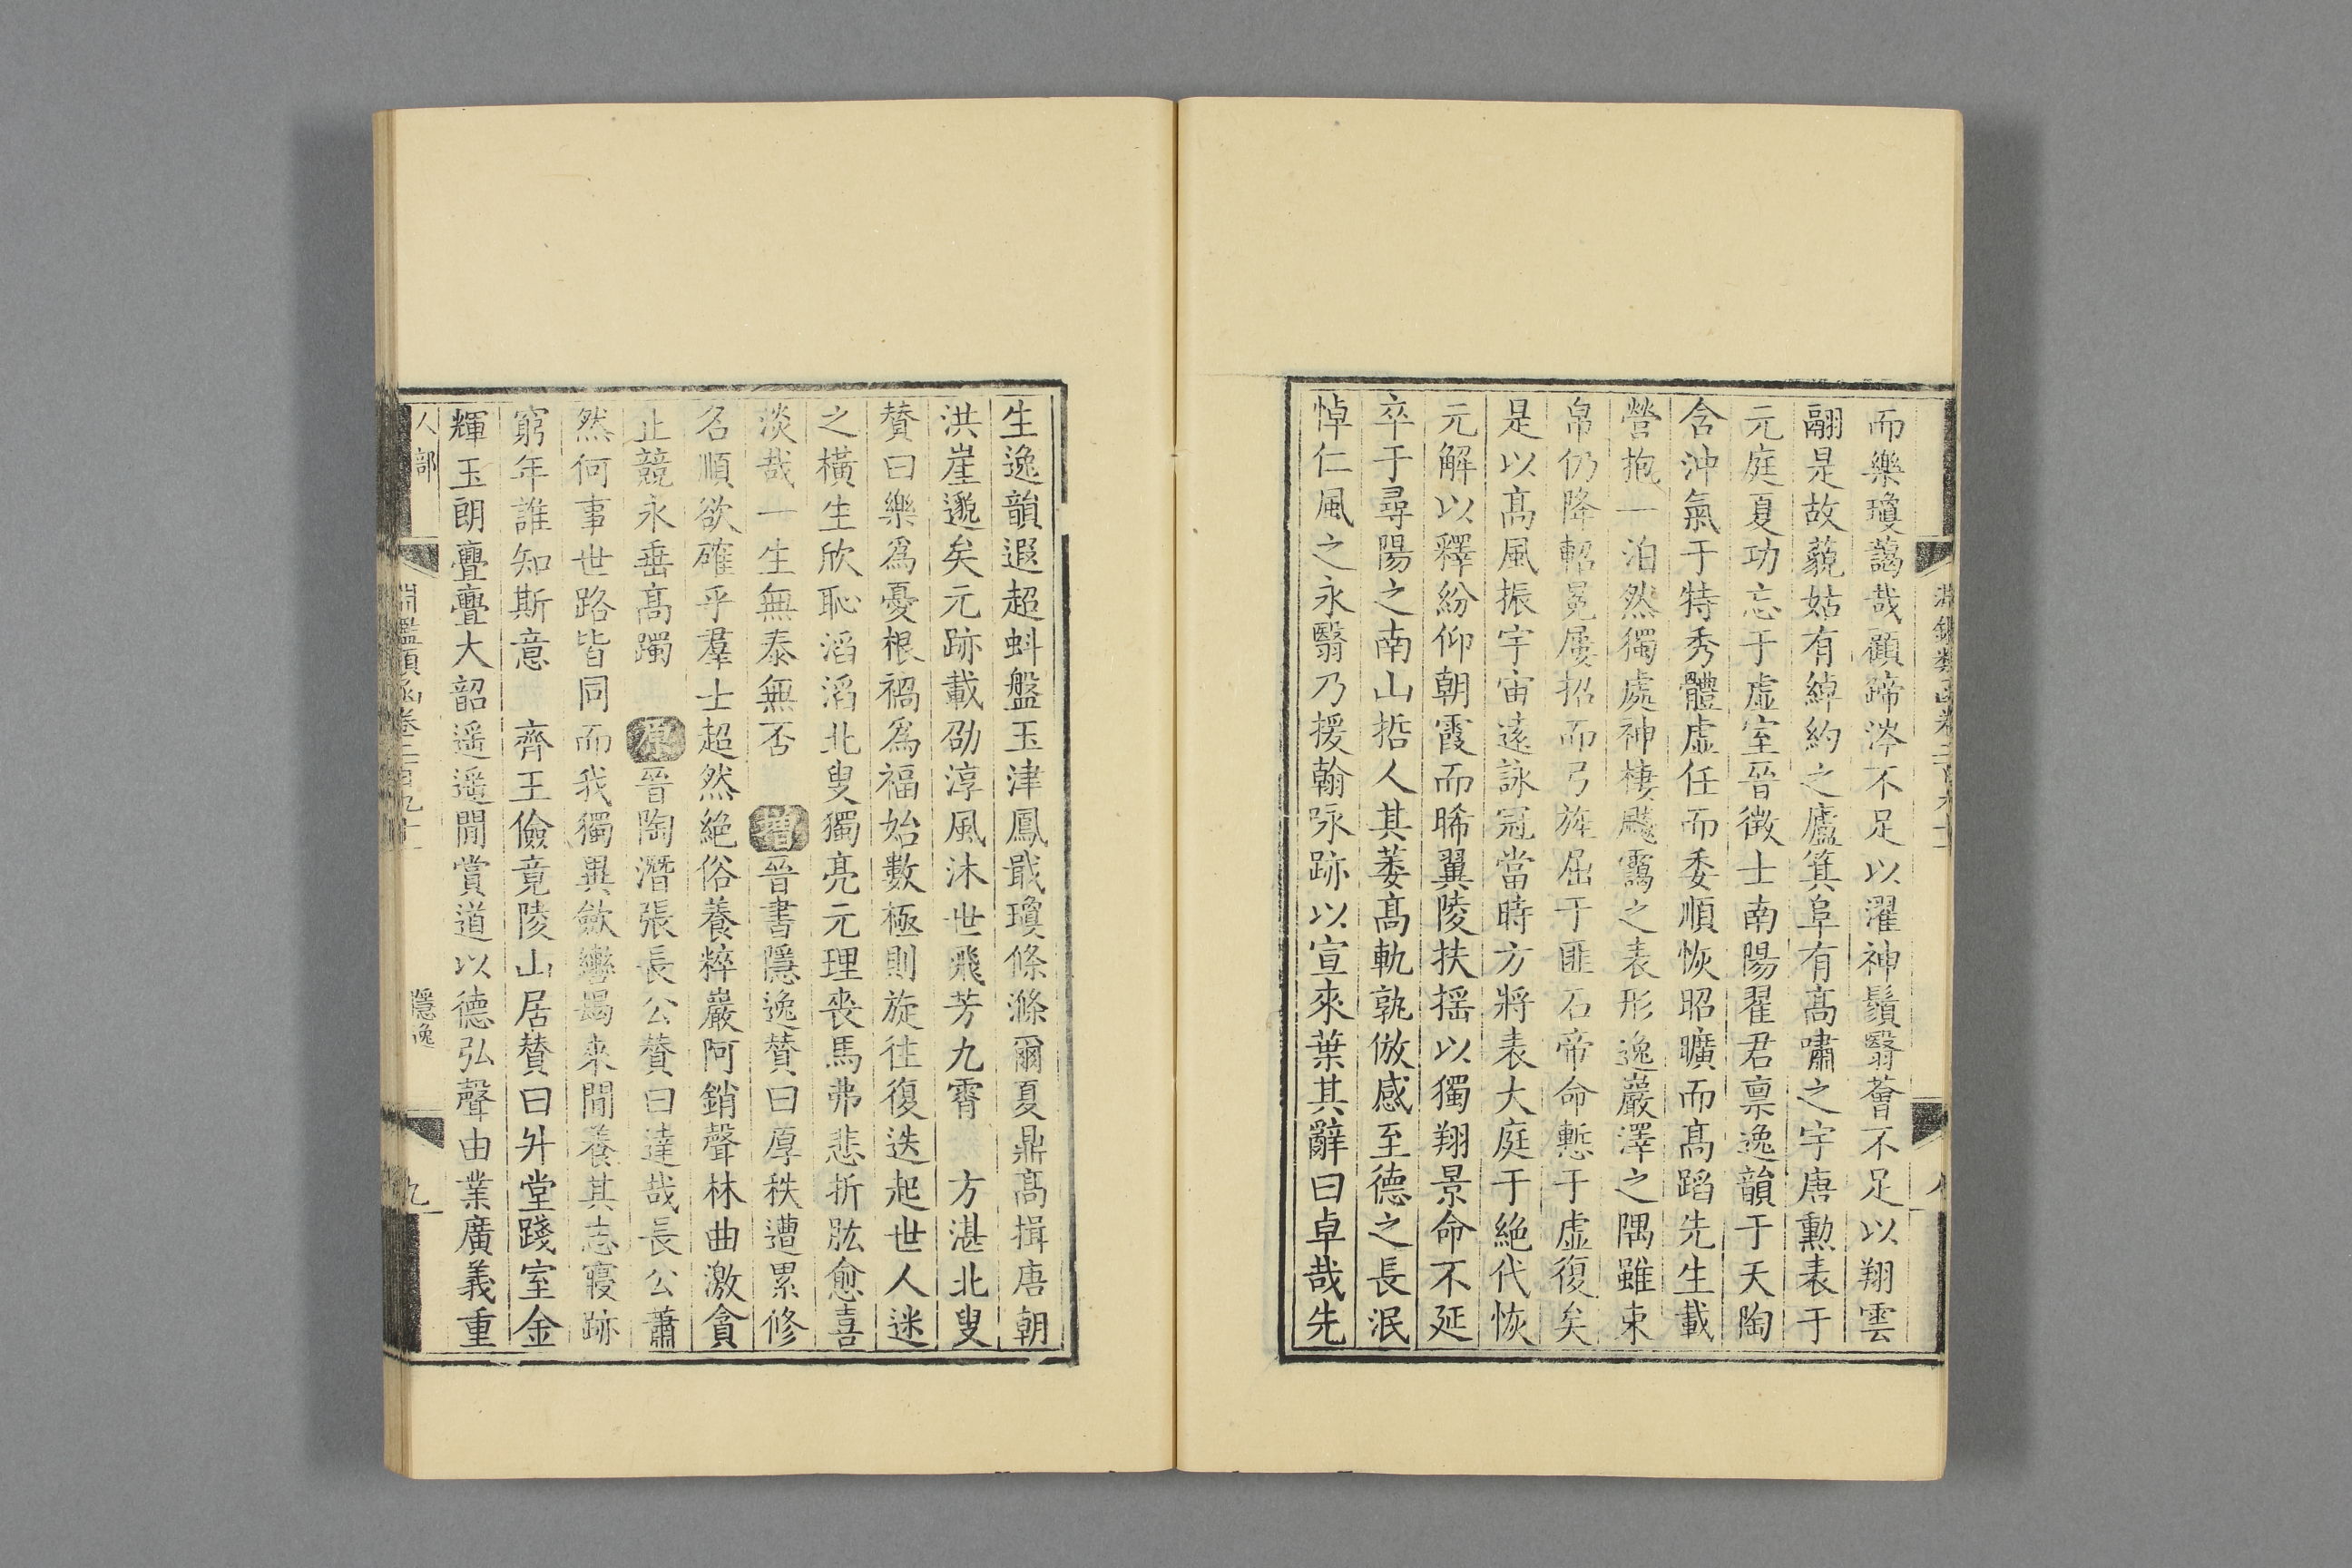 而樂瓊藹哉顧蹄涔不足以濯神鬚翳薈不足以翔雲
翮是故藐姑有綽約之廬箕阜有髙嘯之宇唐勲表于
元庭夏功忘于虚室晉徴士南陽翟君禀逸韻于天陶
含沖氣于特秀體虚任而委順恢昭曠而髙蹈先生載
營抱一泊然獨處神棲飈靄之表形逸巖澤之隅雖束
帛仍降軺冕屢招而弓旌屈于匪石帝命慙于虚復矣
是以髙風振宇宙逺詠冠當時方將表大庭于絶代恢
元解以釋紛仰朝霞而晞翼陵扶揺以獨翔景命不延
卒于尋陽之南山哲人其萎髙軌孰倣感至德之長泯
悼仁風之永翳乃援翰詠跡以宣來葉其辭曰卓哉先
生逸韻遐超蚪盤玉津鳳戢瓊條滌爾夏鼎髙揖唐朝
洪崖邈矣元跡載劭淳風沐世飛芳九霄 方湛北叟
賛曰樂爲憂根禍爲福始數極則旋往復迭起世人迷
之横生欣恥滔滔北叟獨亮元理喪馬弗悲折肱愈喜
淡哉一生無泰無否 增晉書隱逸賛曰厚秩遭累修
名順欲確乎羣士超然絶俗養粹巖阿銷聲林曲激貪
止競永垂髙躅 原晉陶潛張長公賛曰達哉長公蕭
然何事世路皆同而我獨異斂轡朅来閒養其志寢跡
窮年誰知斯意 齊王儉竟陵山居賛曰升堂踐室金
輝玉朗亹亹大韶遥遥閒賞道以德弘聲由業廣義重
人部
淵鑑類函卷二百九十
隱逸
九